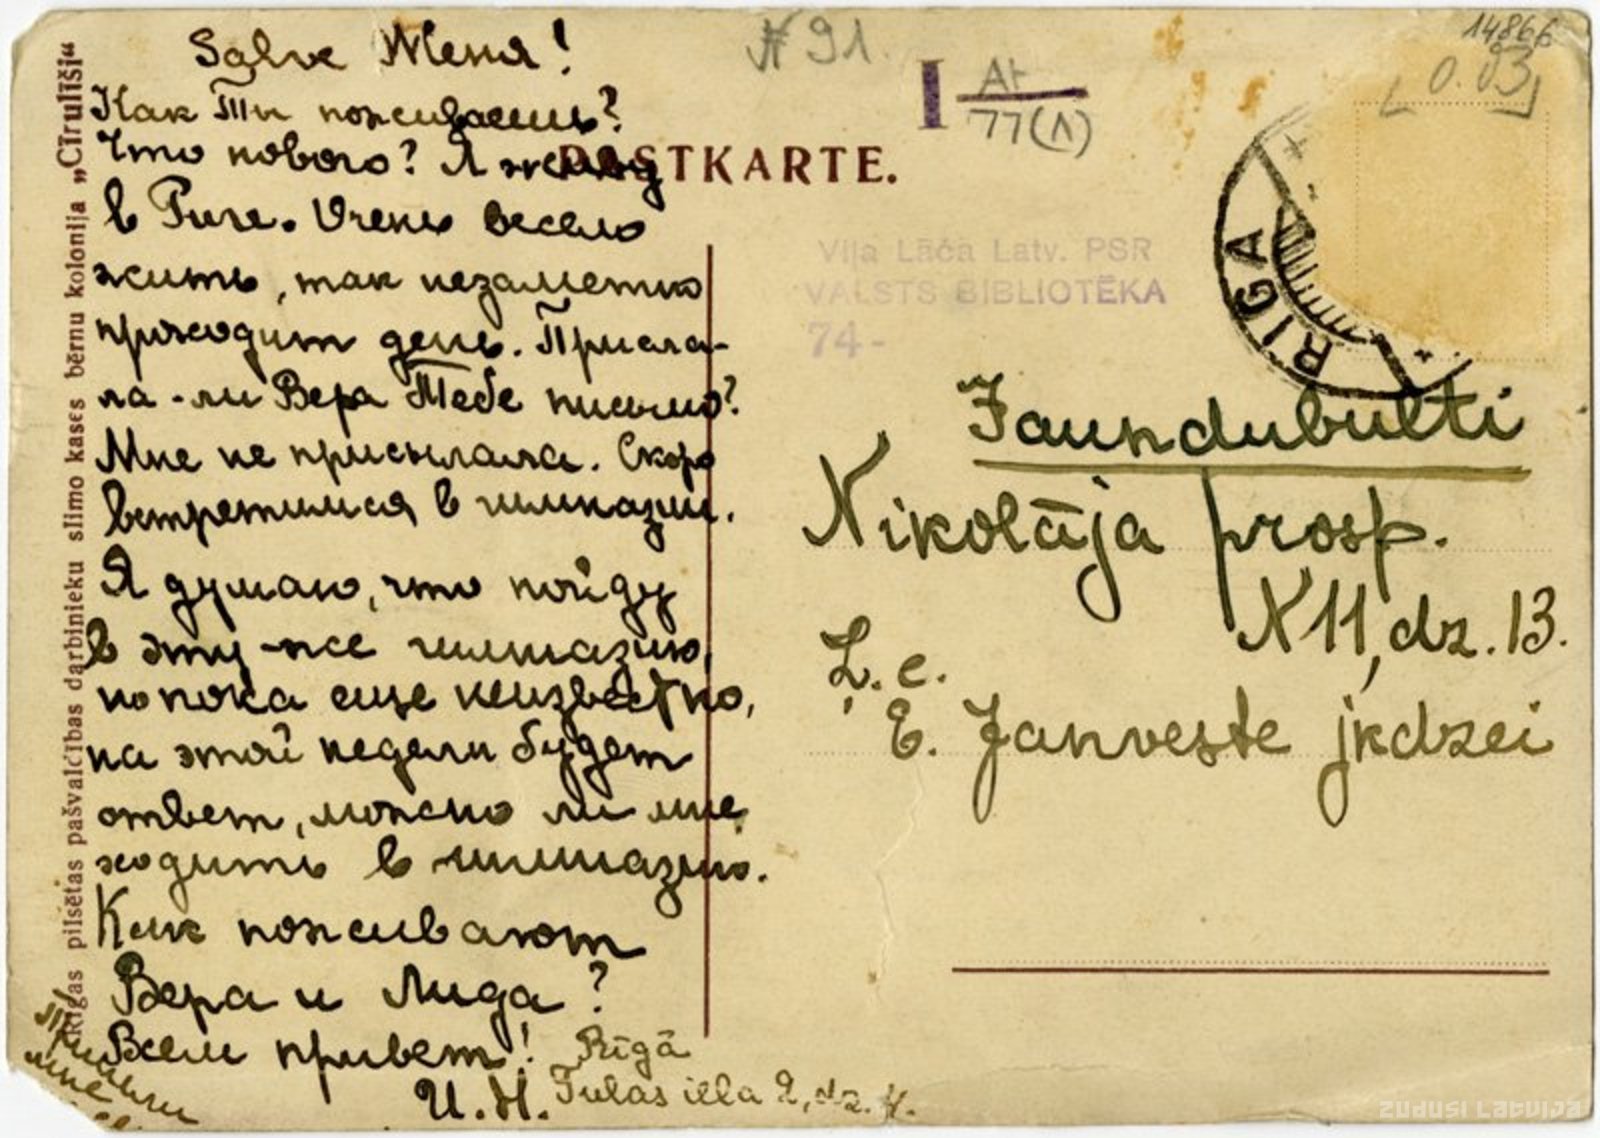 Salve Женя!
Как Ты поживаешь?
Что нового? Я живу
в Риге. Очень весело
жить, так незаметно
проходит день. Присла-
ла-ли Вера Тебе письмо?
Мне не присылала. Скоро
встретимся в гимназии.
Я думаю, что пойду
в эту-же гимназию,
но пока еще неизвестно,
на этой недели будет
ответ, можно ли мне
ходить в гимназию.
Как поживают
Вера и Лида?
Всем привет!
И. Н.
Rīgā
Tulas iela 2, dz. 4.
Пиши
мне
Rīgas pilsētas pašvalcības darbinieku slimo kases bērnu kolonija „Cīrulīši“
N 91.
I A1
77(Λ)
14866
0.03
PASTKARTE.
Viļa Lāča Latv. PSR
VALSTS BIBLIOTĒKA
74-
RIGA
Jaundubulti
Nikolāja prosp.
N 11, dz. 13.
Ļ. c.
E. Janveste jkdzei
ZUDUSI LATVIJA